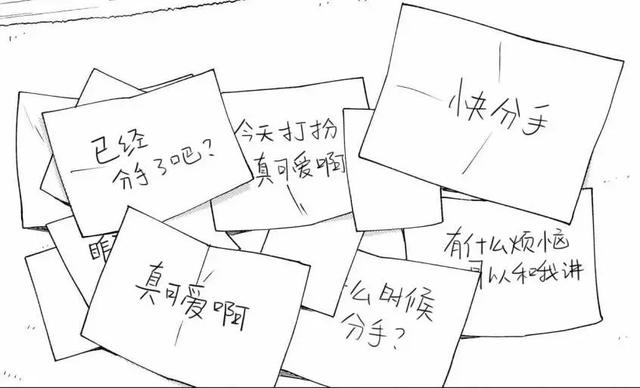 已经
分手了吧？
今天打扮
真可爱啊
快分手
有什么烦恼
可以和我讲
真可爱啊
么时候
分手？